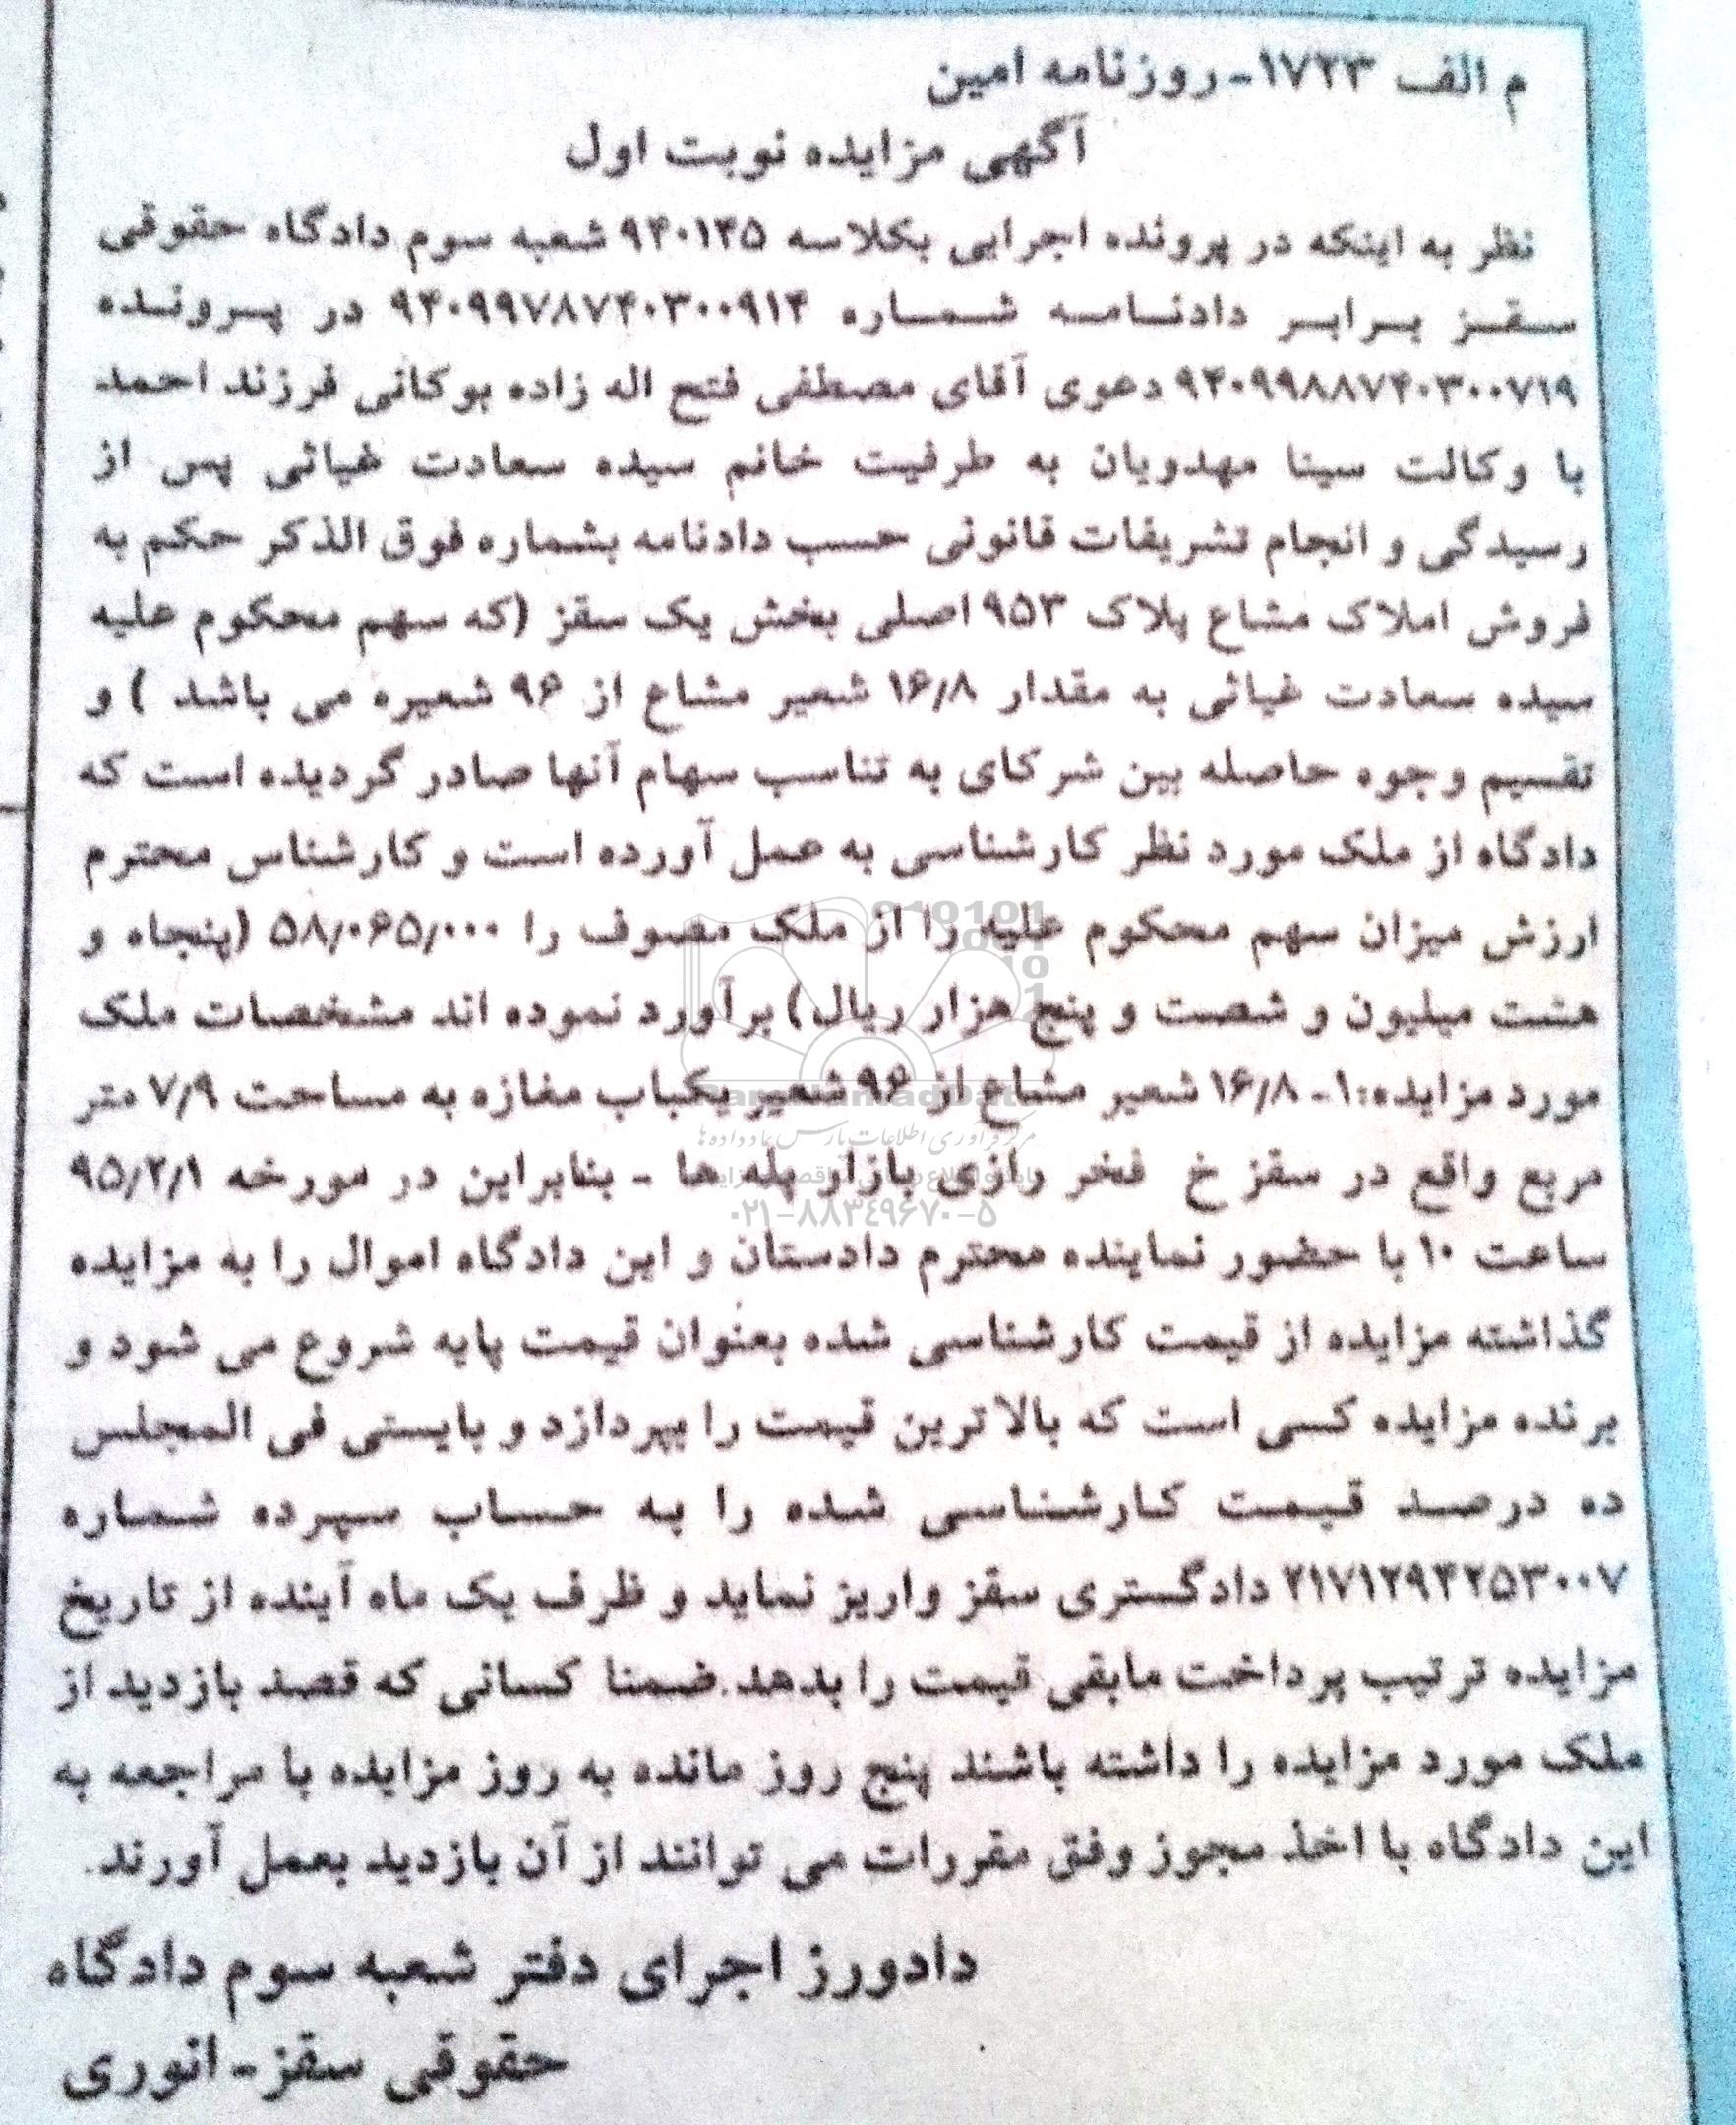 م الف ۱۷۲۳-روزنامه امین
آگهی مزایده نوبت اول
نظر به اینکه در پرونده اجرایی بکلاسه ۹۴۰۱۴۵ شعبه سوم دادگاه حقوقی
سقز برابر دادنامه شماره ۹۴۰۹۹۷۸۷۴۰۳۰۰۹۱۴ در پرونده
۹۴۰۹۹۸۸۷۴۰۳۰۰۷۱۹ دعوی آقای مصطفی فتح اله زاده بوکانی فرزند احمد
با وکالت سینا مهدویان به طرفیت خانم سیده سعادت غیاثی پس از
رسیدگی و انجام تشریفات قانونی حسب دادنامه بشماره فوق الذکر حکم به
فروش املاک مشاع پلاک ۹۵۳ اصلی بخش یک سقز (که سهم محکوم علیه
سیده سعادت غیاثی به مقدار ۱۶/۸ شعیر مشاع از ۹۶ شعیره می باشد ) و
تقسیم وجوه حاصله بین شرکای به تناسب سهام آنها صادر گردیده است که
دادگاه از ملک مورد نظر کارشناسی به عمل آورده است و کارشناس محترم
ارزش میزان سهم محکوم علیه را از ملک مصوف را ۵۸/۰۶۵/۰۰۰ (پنجاه و
هشت میلیون و شصت و پنج هزار ریال) برآورد نموده اند مشخصات ملک
مورد مزایده:۱- ۱۶/۸ شعیر مشاع از ۹۶ شعیر یکباب مغازه به مساحت ۷/۹ متر
مربع واقع در سقز خ فخر رازی بازار پله ها - بنابراین در مورخه ۹۵/۲/۱
۰۲۱-۸۸۳۴۹۶۷۰-۵
ساعت ۱۰ با حضور نماینده محترم دادستان و این دادگاه اموال را به مزایده
گذاشته مزایده از قیمت کارشناسی شده بعنوان قیمت پایه شروع می شود و
برنده مزایده کسی است که بالاترین قیمت را بپردازد و بایستی فی المجلس
ده درصد قیمت کارشناسی شده را به حساب سپرده شماره
۲۱۷۱۲۹۴۲۵۳۰۰۷ دادگستری سقز واریز نماید و ظرف یک ماه آینده از تاریخ
مزایده ترتیب پرداخت مابقی قیمت را بدهد.ضمنا کسانی که قصد بازدید از
ملک مورد مزایده را داشته باشند پنج روز مانده به روز مزایده با مراجعه به
این دادگاه با اخذ مجوز وفق مقررات می توانند از آن بازدید بعمل آورند.
دادورز اجرای دفتر شعبه سوم دادگاه
حقوقی سقز- انوری